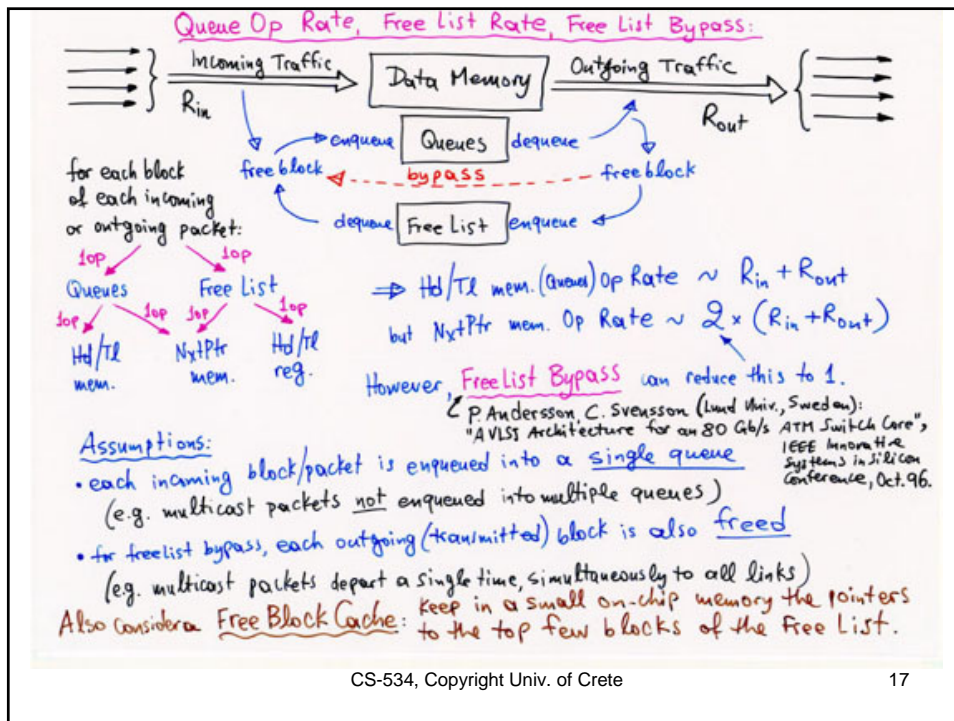 Queue Op Rate, Free List Rate, Free List Bypass:
Incoming Traffic
Rin
Data Memory
Outgoing Traffic
Rout
enqueue
Queues
dequeue
free block
bypass
free block
dequeue
Free List
enqueue
for each block
of each incoming
or outgoing packet:
1op 1op
Queues Free List
1op 1op 1op 1op
Hd/Tl mem.
NxtPtr mem.
Hd/Tl reg.
⇒ Hd/Tl mem. (Queues) Op Rate ~ Rin + Rout
but NxtPtr mem. Op Rate ~ 2 × (Rin + Rout)
However, Free List Bypass can reduce this to 1.
P. Andersson, C. Svensson (Lund Univ., Sweden):
"A VLSI Architecture for an 80 Gb/s ATM Switch Core",
IEEE Innovative
Systems in Silicon
Conference, Oct. 96.
Assumptions:
• each incoming block/packet is enqueued into a single queue
(e.g. multicast packets not enqueued into multiple queues)
• for freelist bypass, each outgoing (transmitted) block is also freed
(e.g. multicast packets depart a single time, simultaneously to all links)
Also consider a Free Block Cache: keep in a small on-chip memory the pointers
to the top few blocks of the Free List.
CS-534, Copyright Univ. of Crete
17